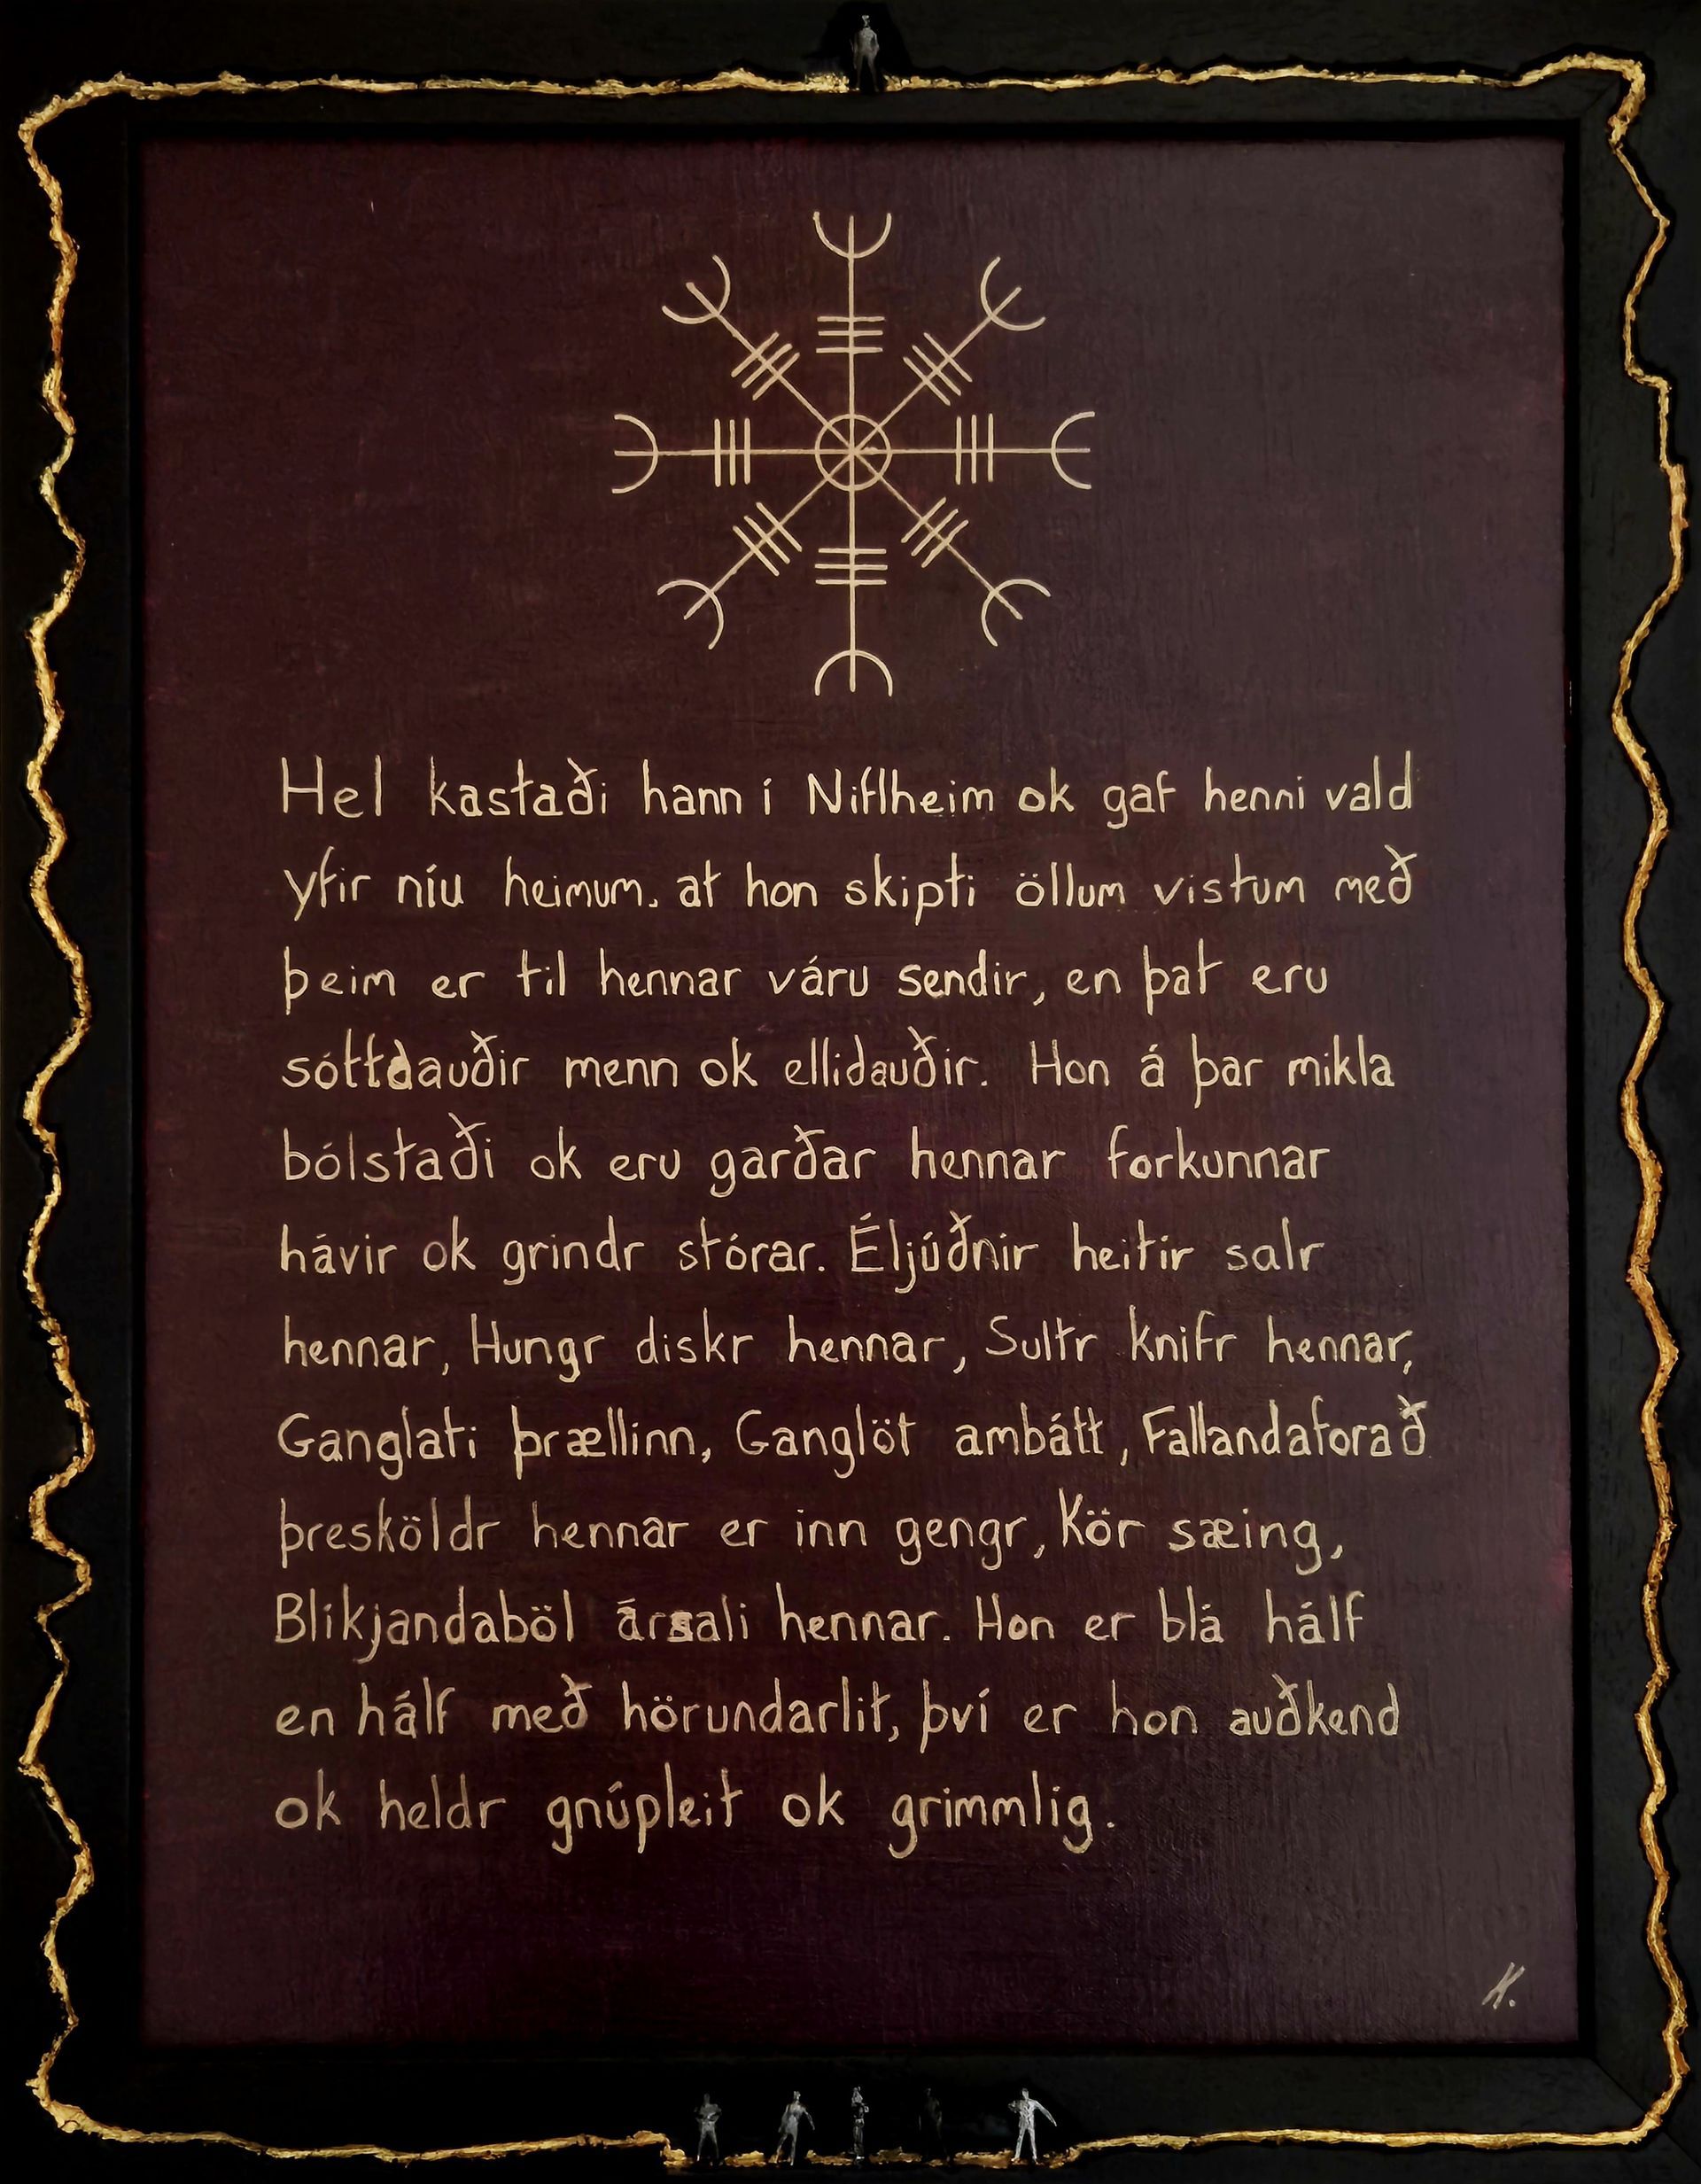 Hel kastaði hann í Niflheim ok gaf henni vald
yfir níu heimum. at hon skipti öllum vistum með
þeim er til hennar váru sendir, en þat eru
sóttdauðir menn ok ellidauðir. Hon á þar mikla
bólstaði ok eru garðar hennar forkunnar
hávir ok grindr stórar. Éljúðnir heitir salr
hennar, Hungr diskr hennar, Sultr knifr hennar,
Ganglati þrællinn, Ganglöt ambátt, Fallandaforað
þresköldr hennar er inn gengr, Kör sæing,
Blíkjandaböl ársali hennar. Hon er blá hálf
en hálf með hörundarlit, því er hon auðkend
ok heldr gnúpleit ok grimmlig.
K.